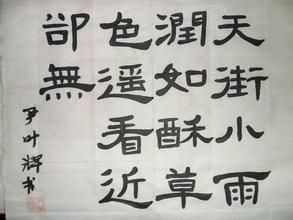 天街小雨
潤如酥草
色遥看近
卻無
尹叶輝书